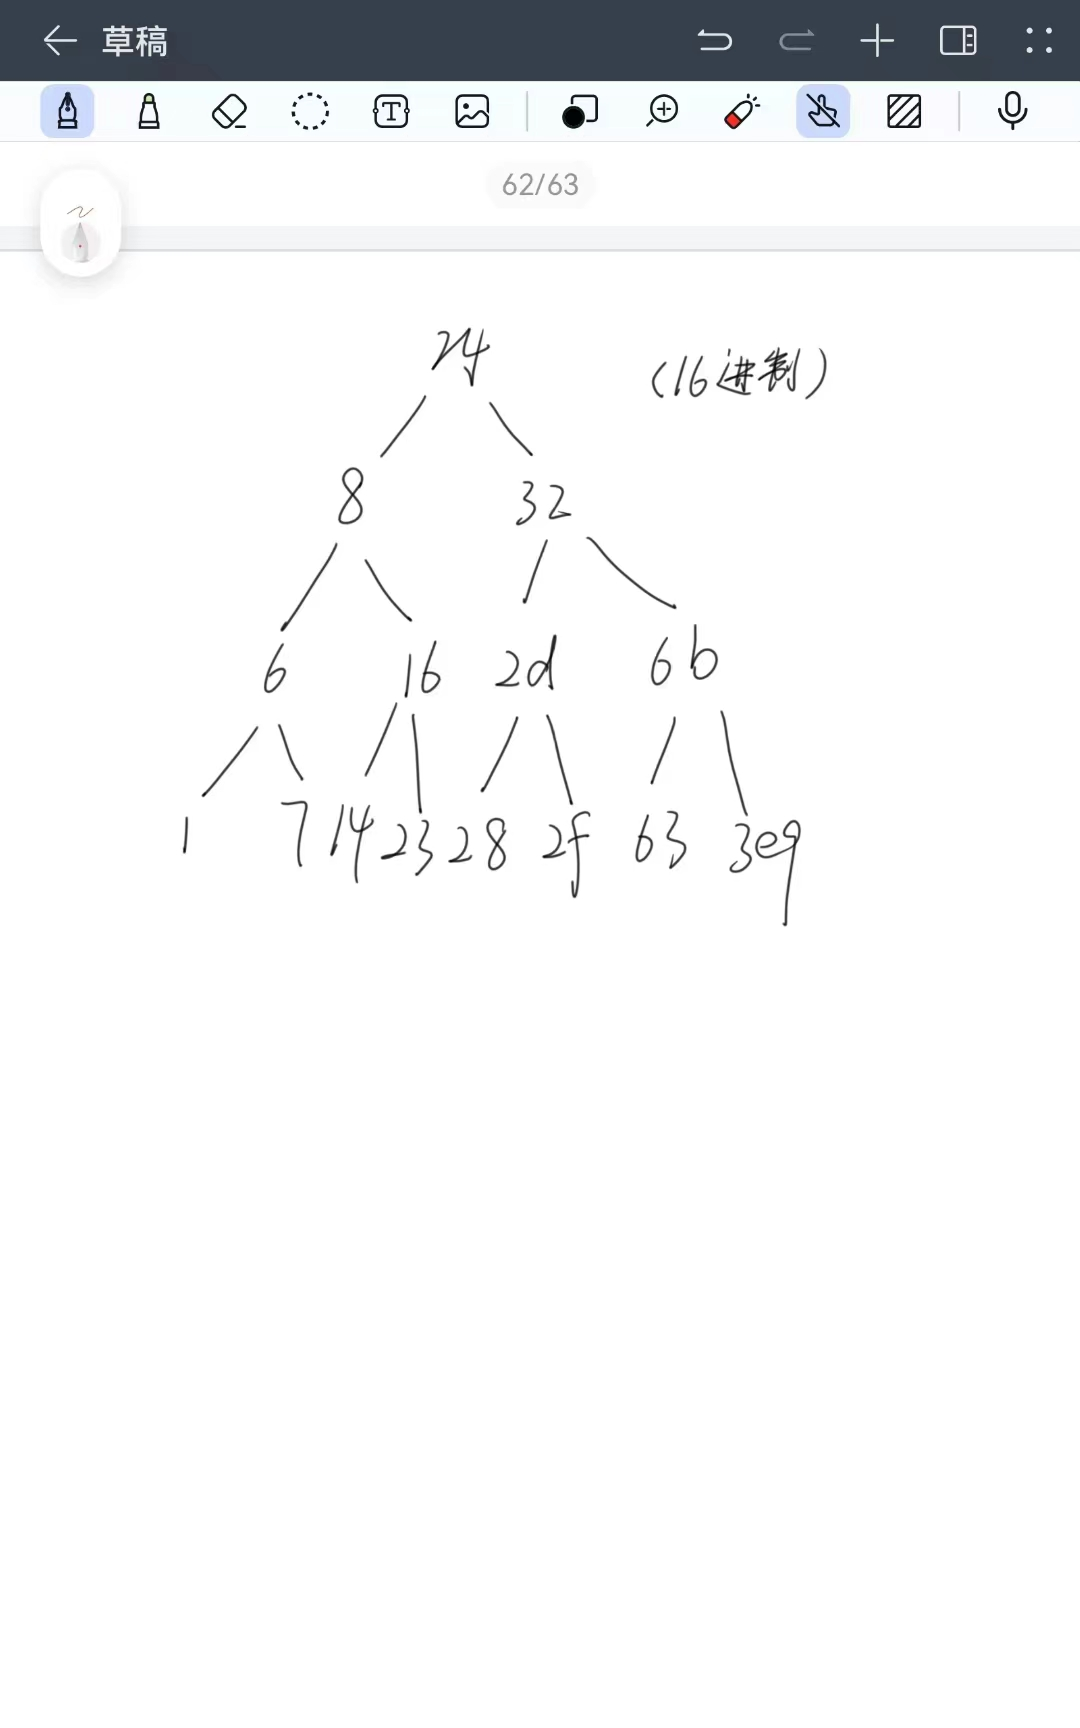 草稿
62/63
24 (16进制)
8 32
6 16 2d 6b
1 7 14 23 28 2f 63 3e9